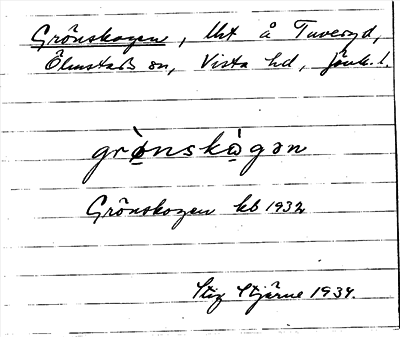 Grönskogen, lht å Tuveryd,
Ölmstads sn, Vista hd, Jönk. l.
grø̀nskò̤gən
Grönskogen kb 1932
Stig Stjärne 1934.